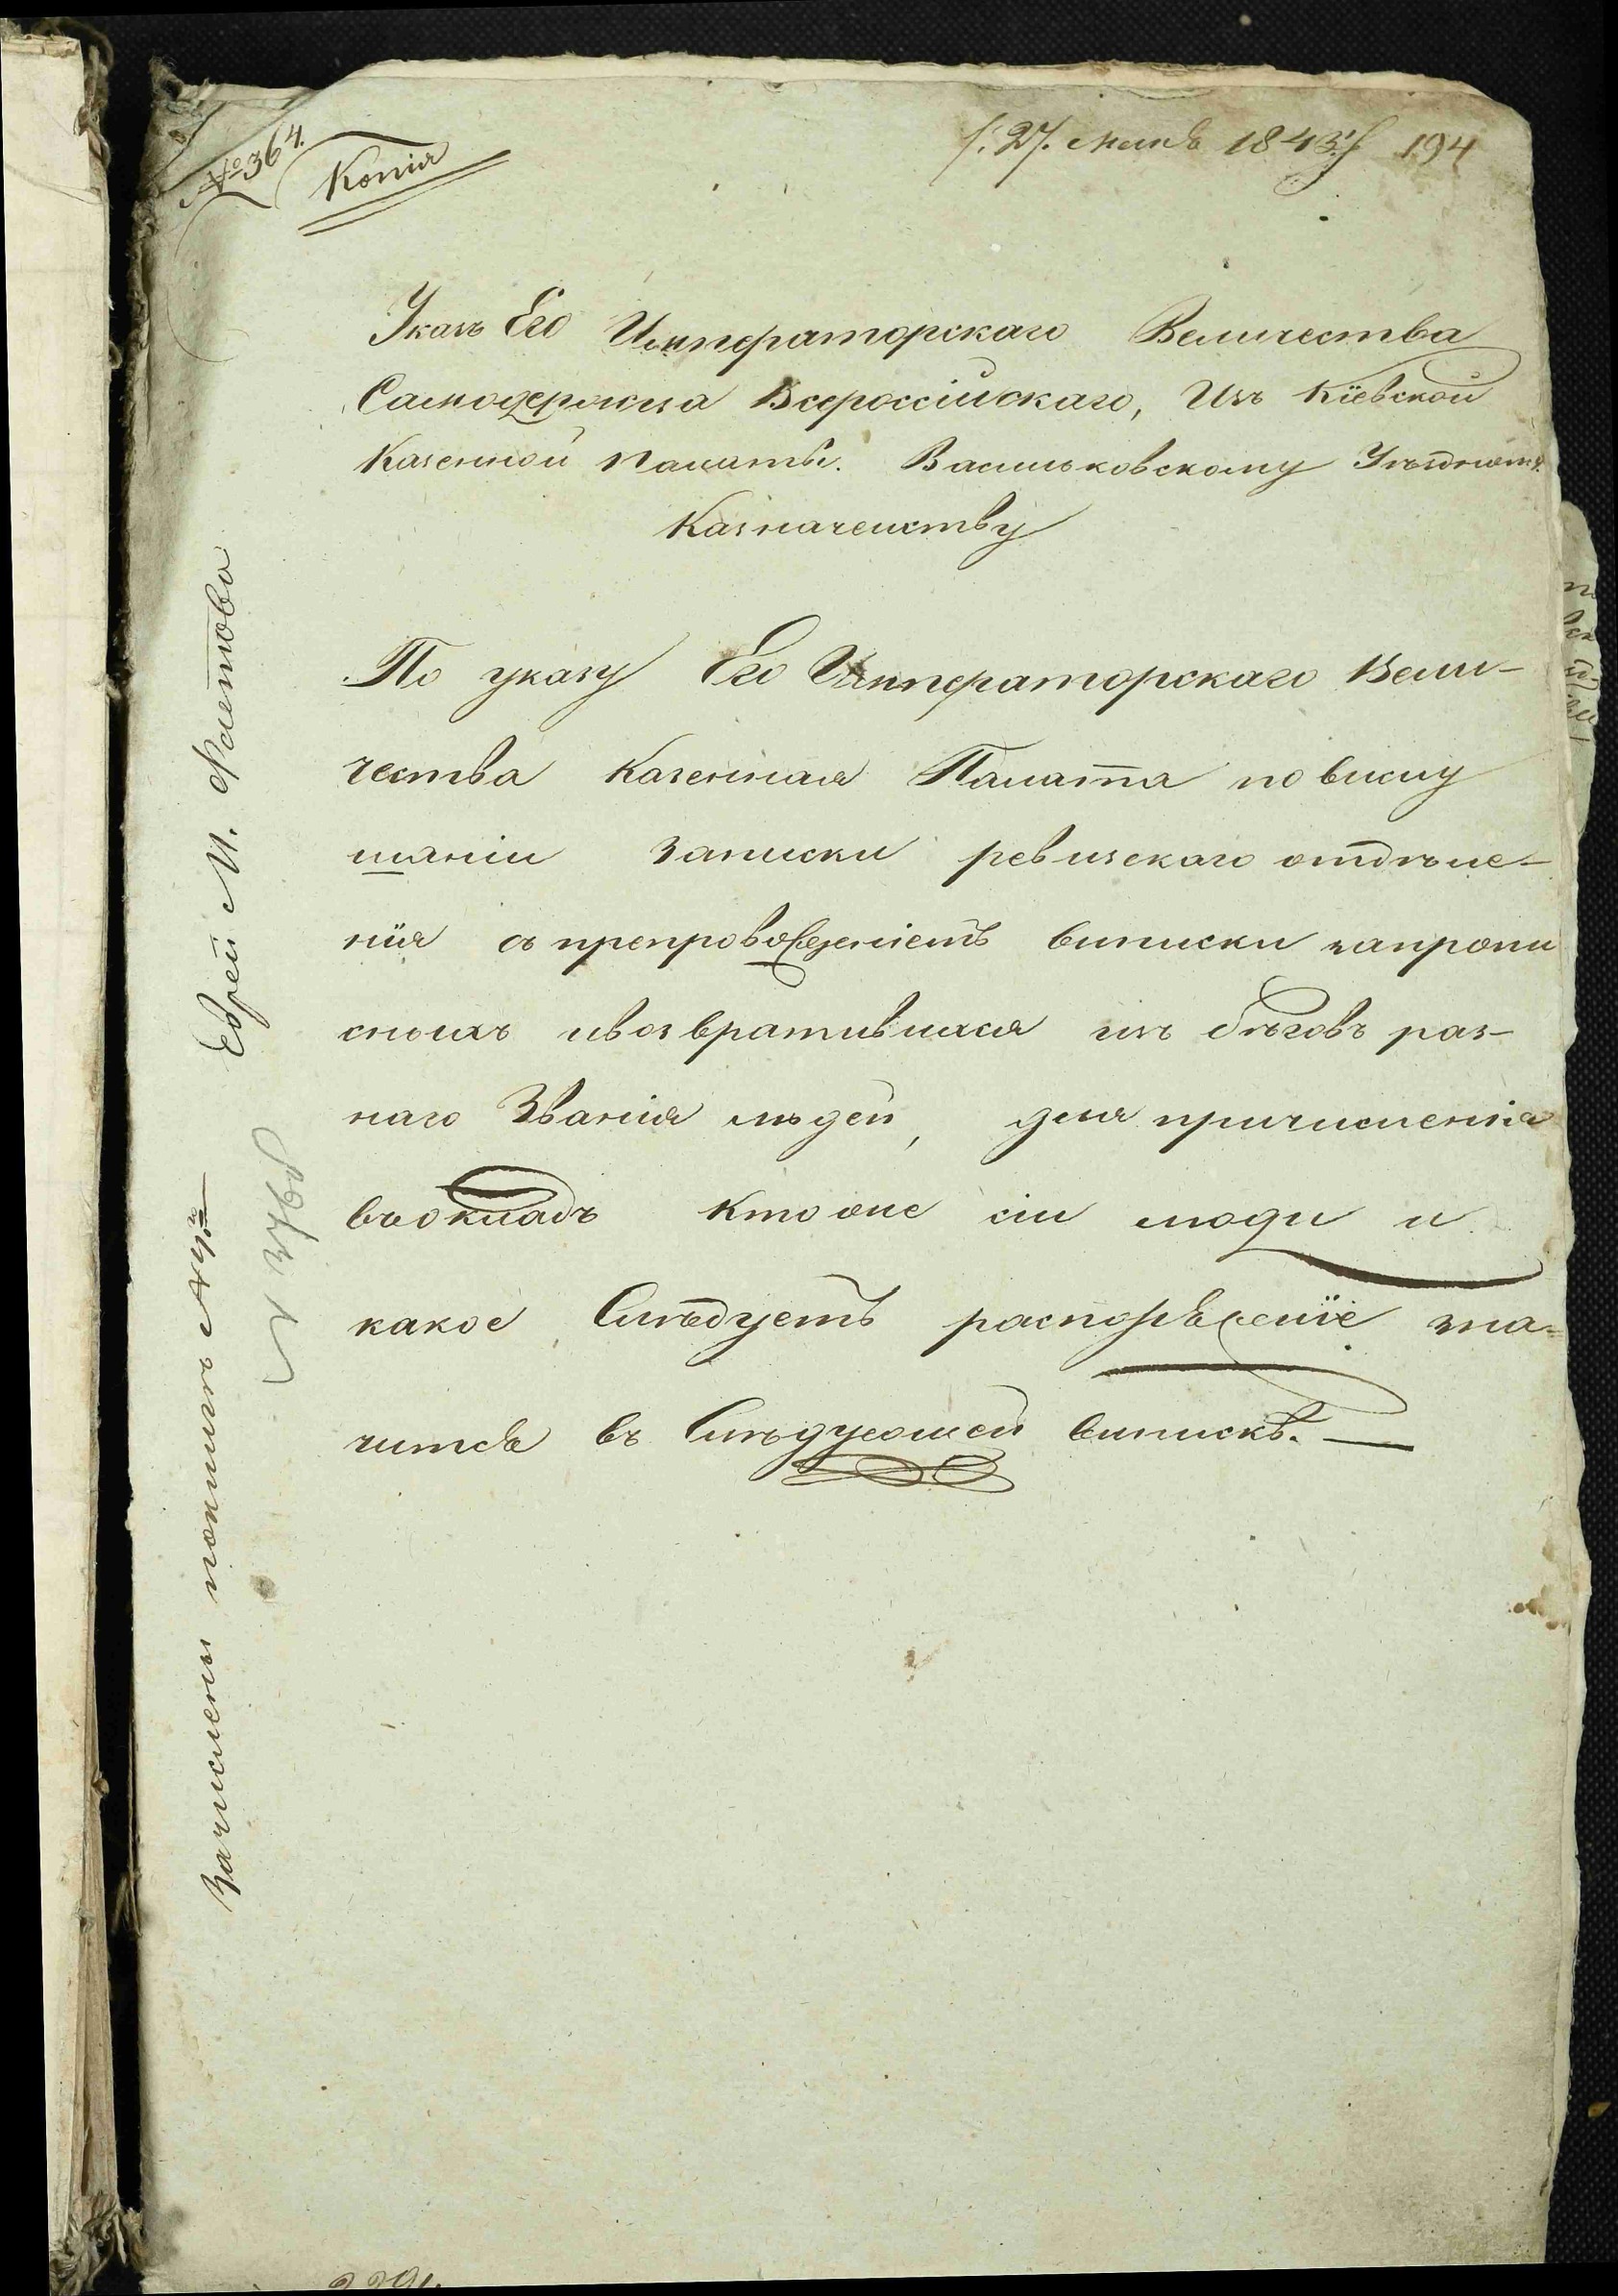 № 364.
Копія
27. Маія 1843. 194
Указъ Его Императорскаго Величества
Самодержца Всероссійскаго, Изъ Кіевской
Казенной Палаты. Васильковскому Уѣздному
Казначейству
По указу Его Императорскаго Вели-
чества Казенная Палата по выслу
шаніи Записки ревизскаго отдѣле-
нія съ препровожденіемъ выписки
ивозвратившихся изъ бѣговъ раз-
наго Званія людей, для причисленія
въокладъ Ктоже сіи люди и
какое Слѣдуетъ зна-
читсѣ въ Слѣдующей выпискѣ.
Еврей М. Фастова
Зачислены